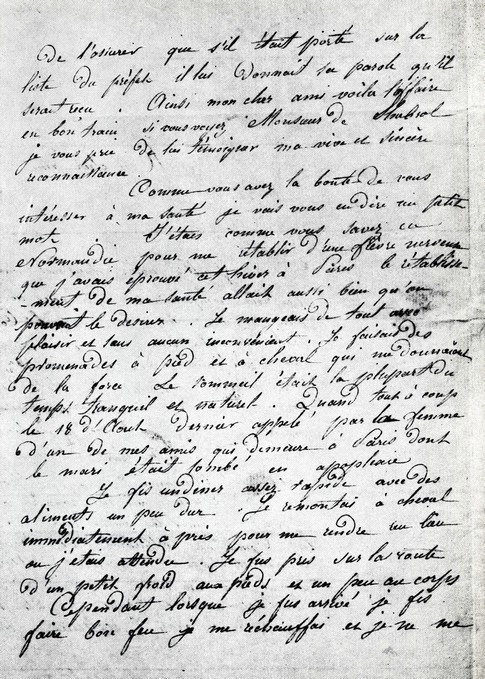 De l'asiurer que s'il était porté sur la
liste du préfet il lui Donnait sa parole qu'il
serait recu. Ainsi mon cher ami voila l'affaire
en bon train si vous voyez Monsieur de
je vous prie de lui témoigner ma vive et sincère
reconnaissance.
Comme vous avez la bonté de vous
intéresser à ma santé je vais vous en dire un petit
mot. J'étais comme vous savez en
Normandie pour me rétablir d'une fièvre nerveuse
que j'avais éprouvé cet hiver à Paris le rétablisse-
-ment de ma santé allait aussi bien qu'on
pouvait le desirer. Je mangeais de tout avec
plaisir et sans aucun inconvénient. Je faisais des
promenades à pied et à cheval qui me donnaient
de la force Le sommeil était la plupart du
temps tranquil et naturel. Quand tout à coup
le 18 d'Aout Dernier appelé par la femme
d'un de mes amis qui demeure à Paris dont
le mari était tombé en apoplexie
Je fis un diner assez rapide avec des
aliments un peu dur. Je remontai à cheval
immédiatement à près pour me rendre au lieu
ou j'etais attendu. Je fus pris sur la route
d'un petit froid aux pieds et un peu au corps
Cependant lorsque je fus arrivé je fis
faire bon feu je me réchauffai et je ne me